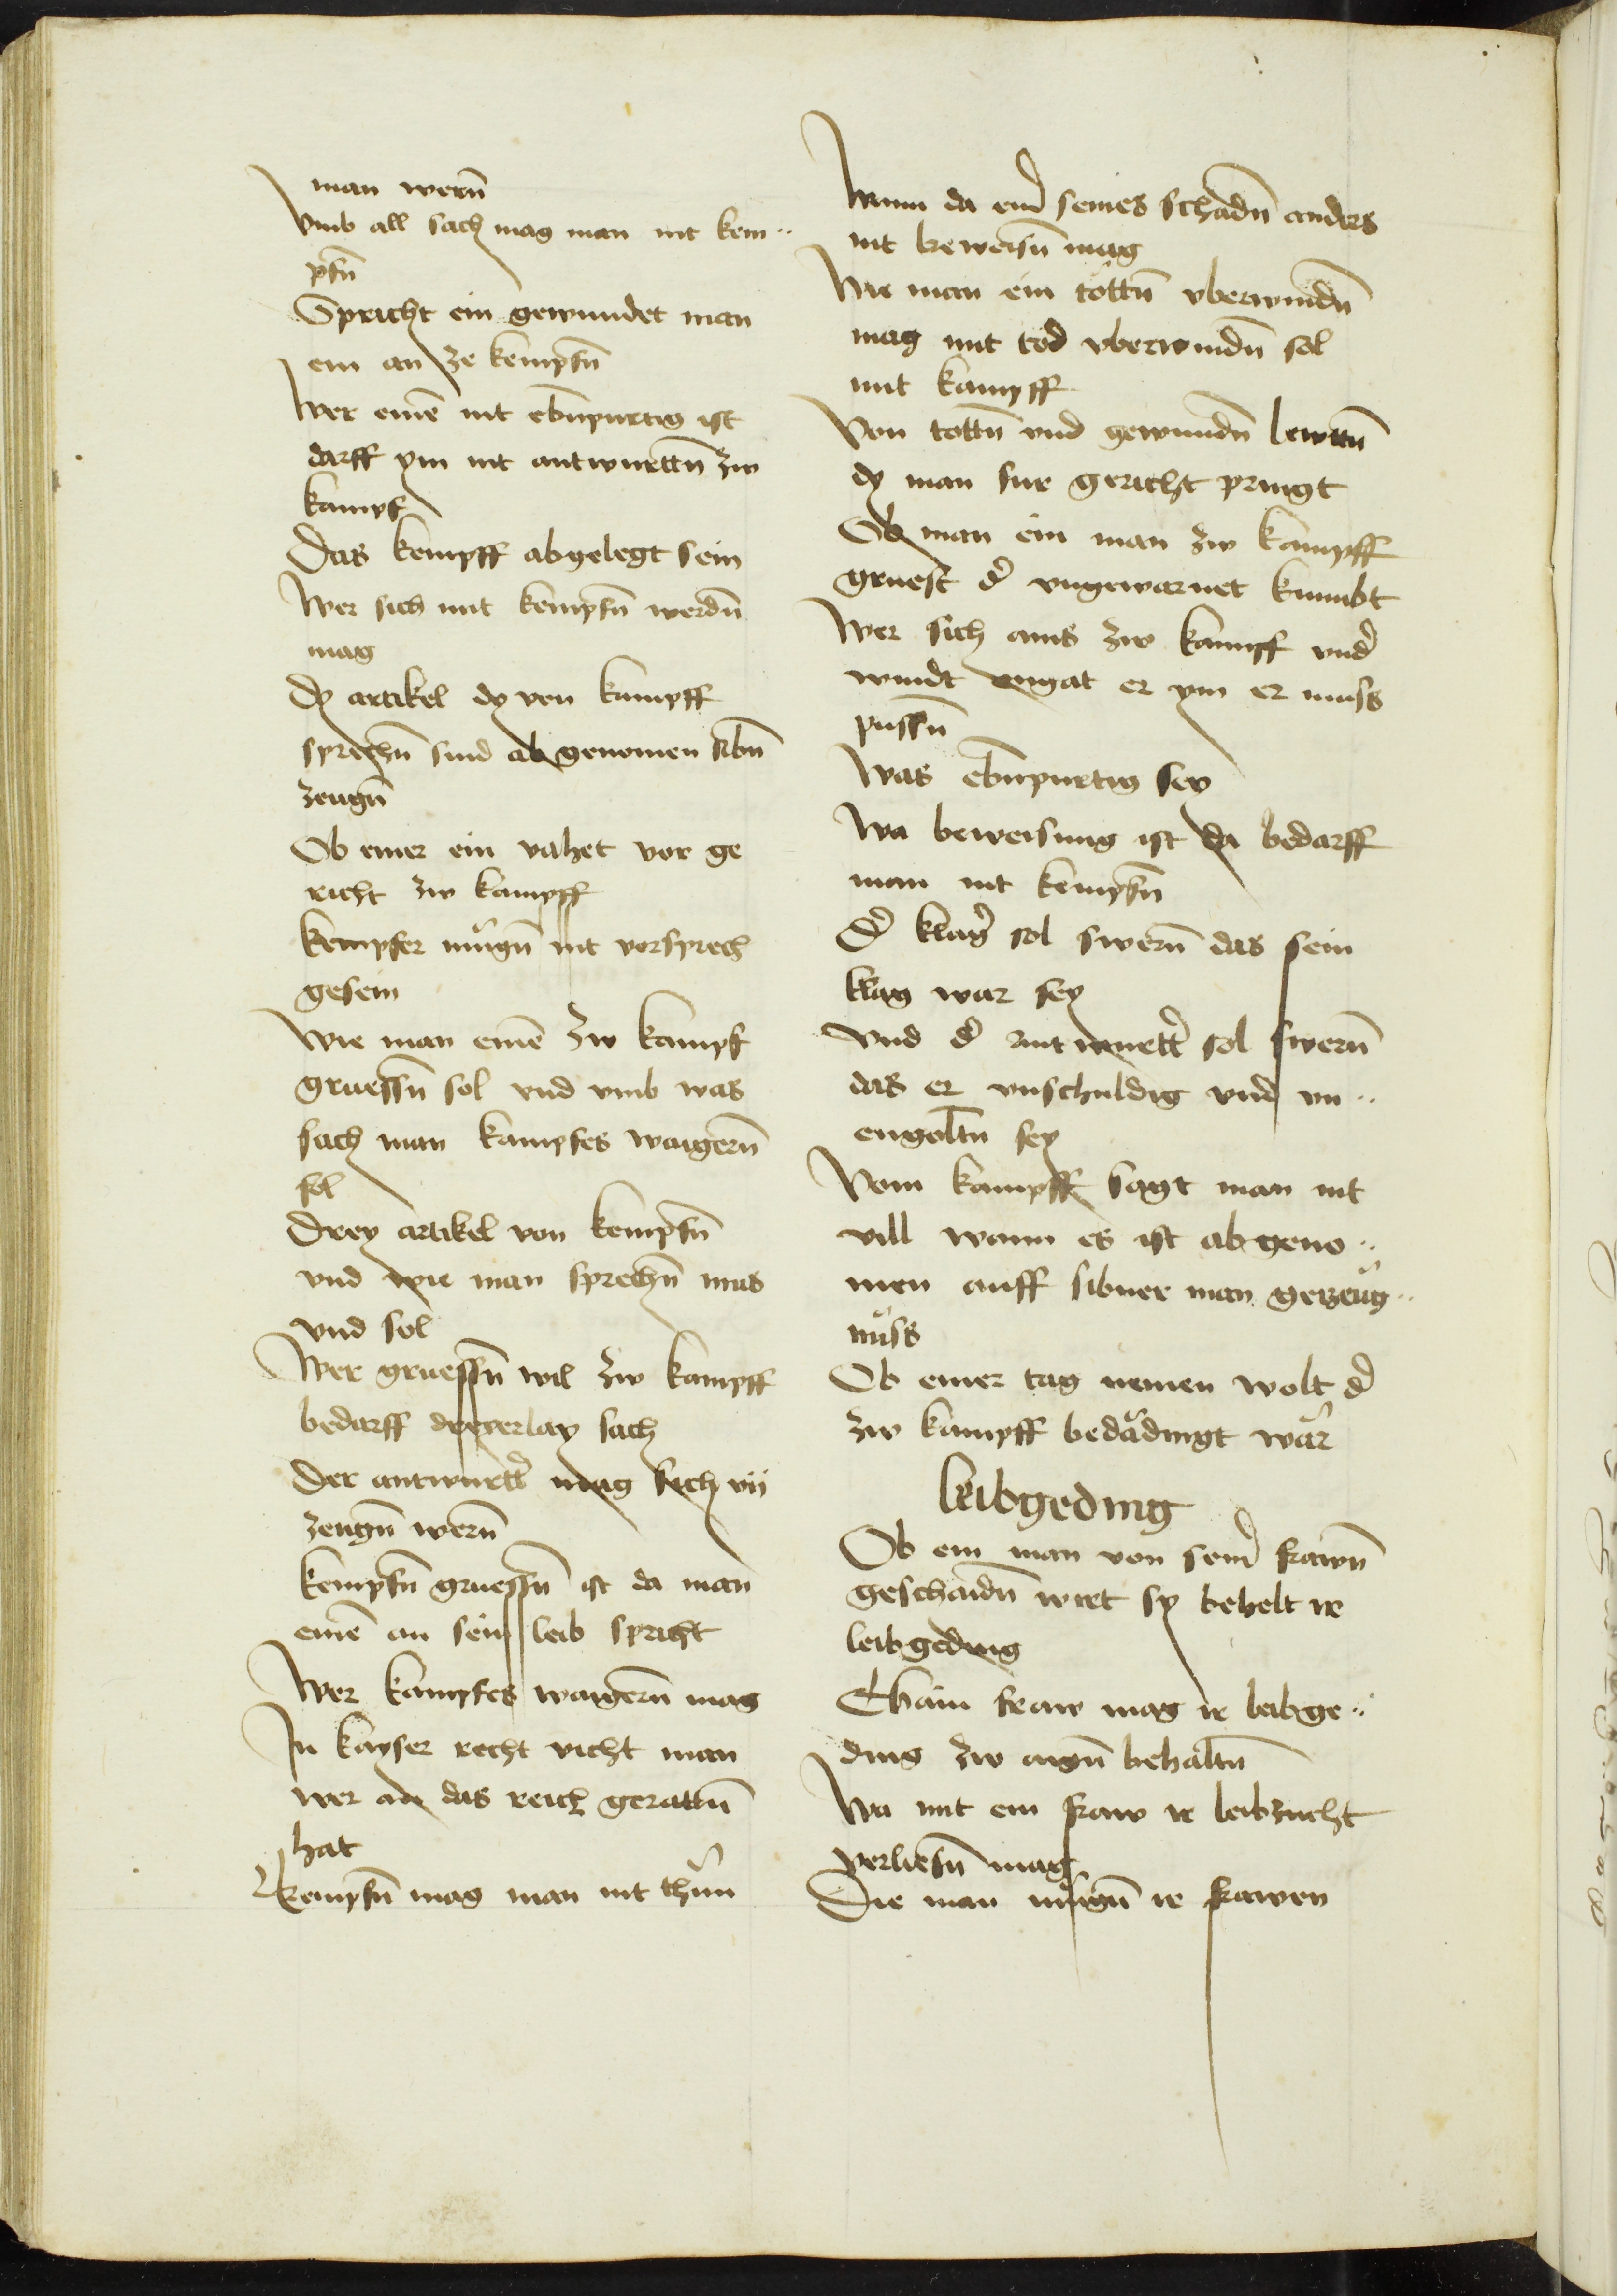 man wern̄
Vmb all sach mag man nit kem¨
pfn̄
Spricht ein gewundet man
ein an ze kempfn̄
Wer eine͂ nit ebn̄purtig ist
darff ym nit antwurttn̄ zw
kampf
Das kempff abgelegt sein
Wer sich mit kempfn̄ werdn̄
mag
Dy artikel dy von kampff
sprechn̄ sind ab genomen sibn̄
zeugn̄
Ob einer ein vahet vor ge
richt zw kampff
Kempfer mügn̄ nit vorsprech
gesein
Wie man eine͂ zw kampf
gruessn̄ sol vnd vmb was
sach man kampfes waigern̄
sol
Drey artikel von kempfn̄
vnd wie man sprechn̄ mus
vnd sol
Wer gruessn̄ wil zw kampff
bedarff dreyerlay sach
Der antwurtt͛ mag sich vij
zeugn̄ wern̄
Kempfn̄ gruessn̄ ist da man
eine͂ an sein leib spricht
Wer kampfes waigern̄ mag
In kayser recht vicht man
wer an das reich gerattn̄
hat
Kempfn̄ mag man nit thun
Wann da ein͛ seines schadn̄ anders
nit beweisn̄ mag
Wie man ein töttn̄ vberwindn̄
mag mit tod vberwindn̄ sol
mit kampff
Von tottn̄ vnd gewundn̄ lewttn̄
dy man fur gericht pringt
Ob man ein man zw kampff
gruest d͛ vngewarnet kumbt
Wer sich ains zw kampff vnd͛
windt engat er ym er muss
pussn̄
Was ebn̄purtig sey
Wa beweisung ist da bedarff
man nit kempfn̄
D͛ klag͛ sol swern̄ das sein
klag war sey
Vnd d͛ antwurtt͛ sol swern̄
das er vnschuldig vnd vn¨
engoltn̄ sey
Vom kampff sagt man nit
vill wann es ist ab geno¨
men auff sibner man gezeüg¨
nüss
Ob einer tag nemen wolt d͛
zw kampff bedädingt wär
Leibgeding
Ob ein man von sein͛ frawn̄
geschaidn̄ wirt sy behelt ir
leibgeding
Chain fraw mag ir leibge¨
ding zw aign̄ behaltn̄
Wa mit ein fraw ir leibzucht
verliesn̄ mag
Die man mügn̄ ir frawen